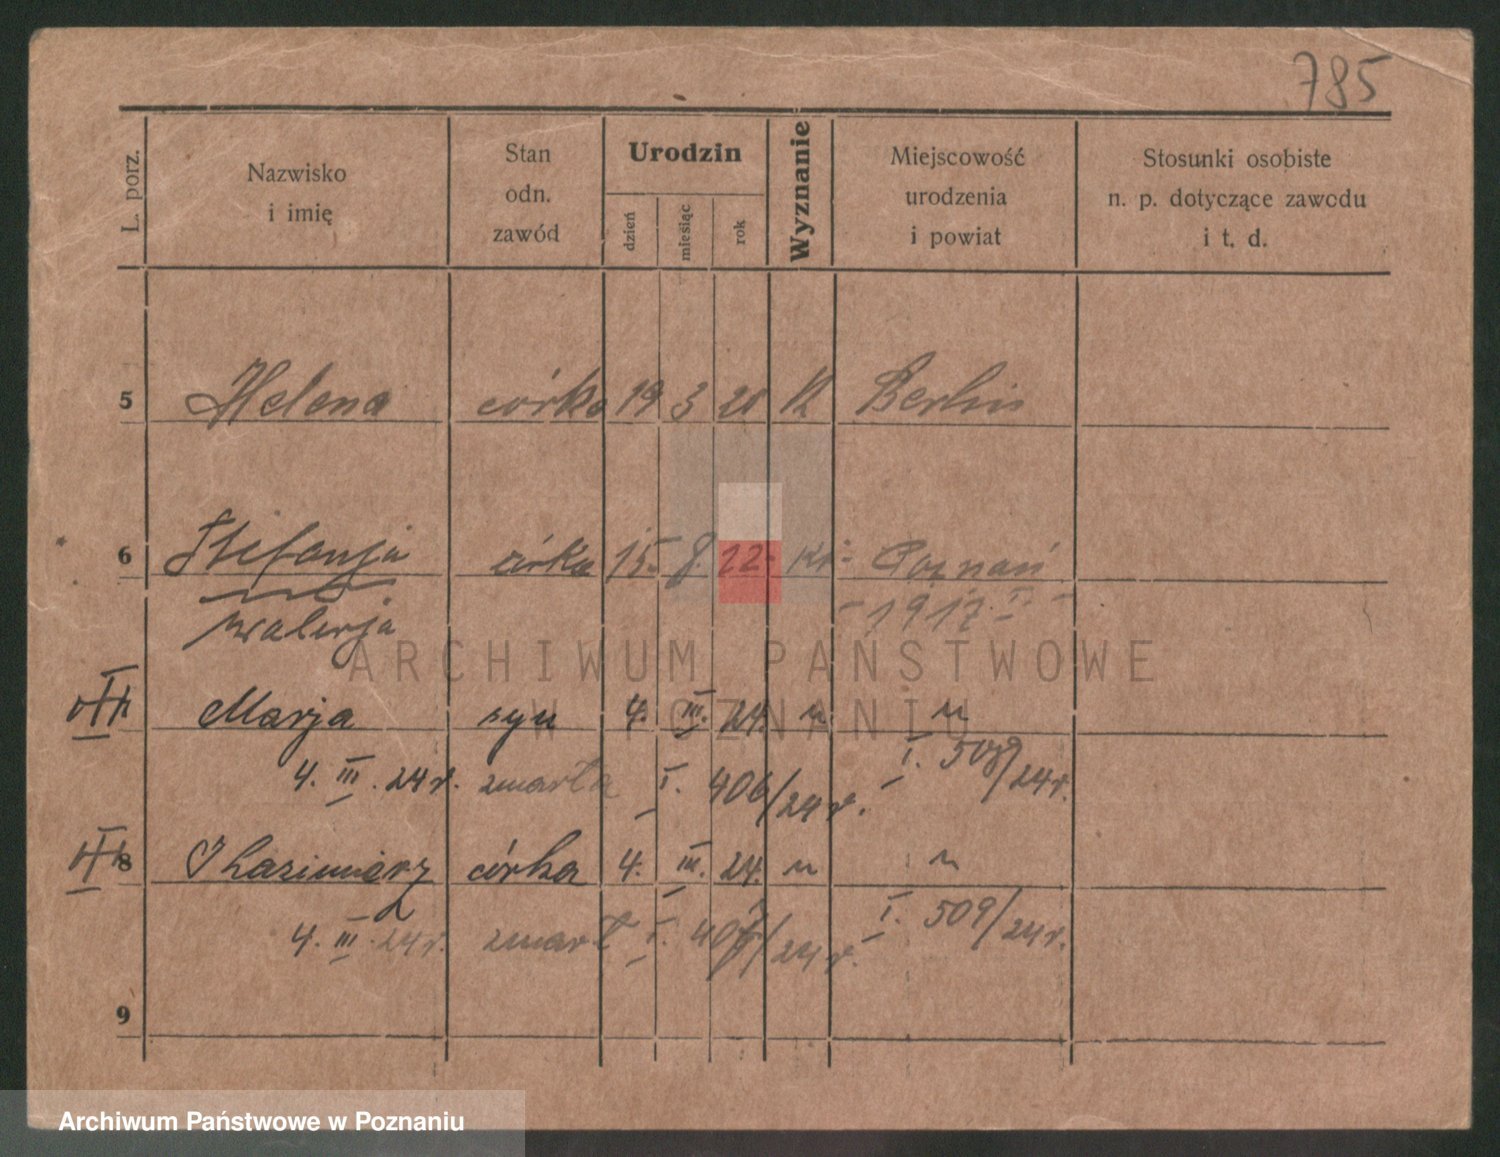 785
L. porz.
Nazwisko i imię
Stan odn. zawód
Urodzin
dzień miesiąc rok
Wyznanie
Miejscowość urodzenia i powiat
Stosunki osobiste n. p. dotyczące zawodu i t. d.
5 Helena córka 19 3 20 K Berlin
6 Stefanja córka 15. 8. 22. Poznań
Walerja - 1917.
Marja syn 4. III. 24. " "
4. III. 24 r. zmarła I. 406/24 r. I. 508/24 r.
8 Kazimierz córka 4. III. 24. " "
4. III. 24 r. zmarł I. 407/24 r. I. 509/24 r.
9
ARCHIWUM PAŃSTWOWE
W POZNANIU
Archiwum Państwowe w Poznaniu